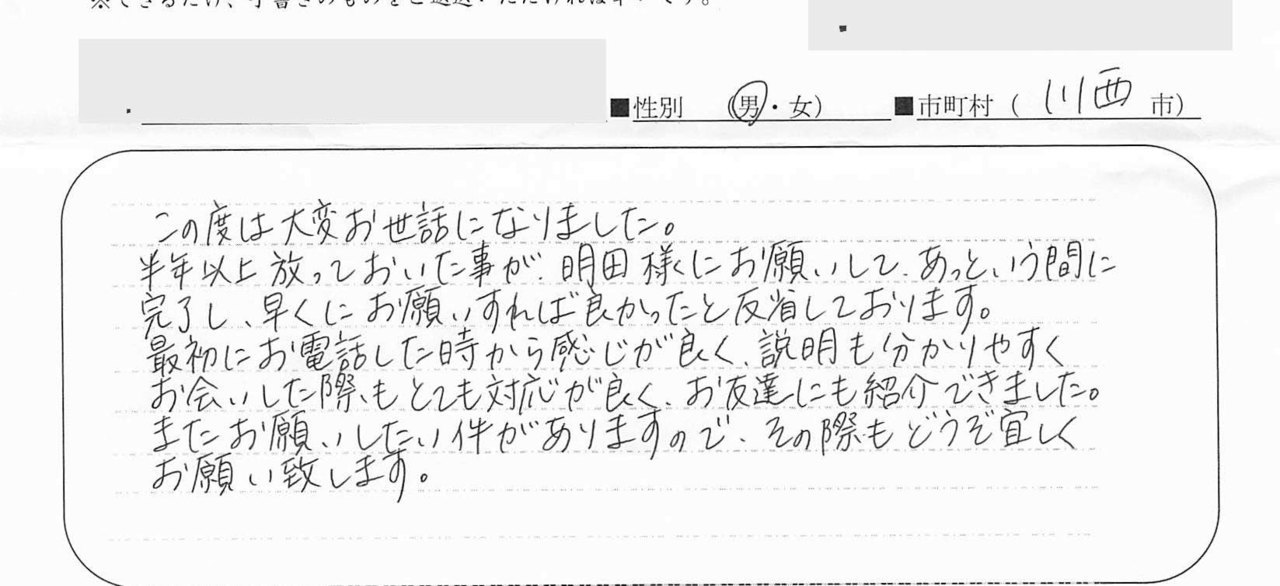 ※できるだけ、手書きのものをご返送いただければ幸いです。
■性別 (男・女) ■市町村 ( 川西 市)
この度は大変お世話になりました。
半年以上放っておいた事が、明田様にお願いして、あっという間に
完了し、早くにお願いすれば良かったと反省しております。
最初にお電話した時から感じが良く、説明も分かりやすく
お会いした際もとても対応が良く、お友達にも紹介できました。
またお願いしたい件がありますので、その際もどうぞ宜しく
お願い致します。